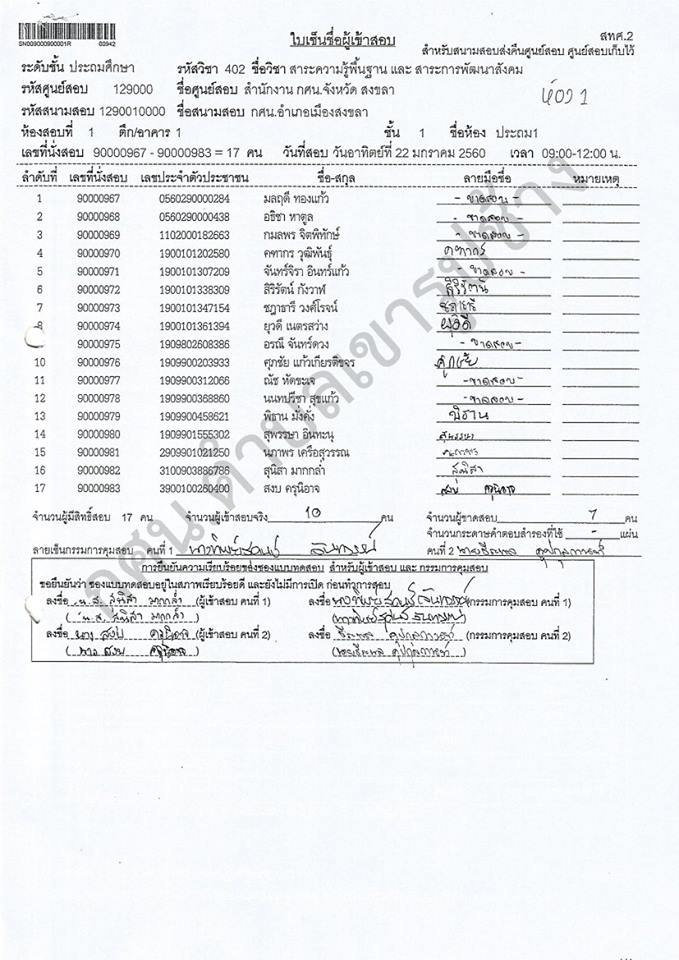 SN009000900001R 00942
ใบเซ็นชื่อผู้เข้าสอบ
สทศ.2
สำหรับสนามสอบส่งคืนศูนย์สอบ ศูนย์สอบเก็บไว้
ระดับชั้น ประถมศึกษา รหัสวิชา 402 ชื่อวิชา สาระความรู้พื้นฐาน และ สาระการพัฒนาสังคม
รหัสศูนย์สอบ 129000 ชื่อศูนย์สอบ สำนักงาน กศน.จังหวัด สงขลา
ห้อง 1
รหัสสนามสอบ 1290010000 ชื่อสนามสอบ กศน.อำเภอเมืองสงขลา
ห้องสอบที่ 1 ตึก/อาคาร 1 ชั้น 1 ชื่อห้อง ประถม1
เลขที่นั่งสอบ 90000967 - 90000983 = 17 คน วันที่สอบ วันอาทิตย์ที่ 22 มกราคม 2560 เวลา 09:00-12:00 น.
ลำดับที่ เลขที่นั่งสอบ เลขประจำตัวประชาชน ชื่อ-สกุล ลายมือชื่อ หมายเหตุ
1 90000967 0560290000284 มลฤดี ทองแก้ว - ขาดสอบ -
2 90000968 0560290000438 อธิชา หาดูล - ขาดสอบ -
3 90000969 1102000182663 กมลพร จิตพิทักษ์ - ขาดสอบ -
4 90000970 1900101202580 คฑากร วุฒิพันธุ์ คฑากร
5 90000971 1900101307209 จันทร์จิรา อินทร์แก้ว - ขาดสอบ -
6 90000972 1900101338309 สิริรัตน์ กังวาฬ สิริรัตน์
7 90000973 1900101347154 ชฎาธารี วงศ์โรจน์
8 90000974 1900101361394 ยุวดี เนตรสว่าง ยุวดี
90000975 1909802608386 อรณี จันทร์ดวง - ขาดสอบ -
10 90000976 1909900203933 ศุภชัย แก้วเกียรติขจร ศุภชัย
11 90000977 1909900312066 ณัช หัดขะเจ - ขาดสอบ -
12 90000978 1909900368860 นนทปรีชา สุขแก้ว - ขาดสอบ -
13 90000979 1909900458621 พิธาน มั่งคั่ง พิธาน
14 90000980 1909901555302 สุพรรษา อินทะนุ สุพรรษา
15 90000981 2909901021250 นภาพร เครือสุวรรณ นภาพร
16 90000982 3100903886786 สุนิสา มากกล่ำ สุนิสา
17 90000983 3900100260400 สงบ ครุนิอาจ สงบ ครุนิอาจ
จำนวนผู้มีสิทธิ์สอบ 17 คน จำนวนผู้เข้าสอบจริง 10 คน จำนวนผู้ขาดสอบ 7 คน
จำนวนกระดาษคำตอบสำรองที่ใช้ - แผ่น
ลายเซ็นกรรมการคุมสอบ คนที่ 1 คนที่ 2
การยืนยันความเรียบร้อยของซองแบบทดสอบ สำหรับผู้เข้าสอบ และ กรรมการคุมสอบ
ขอยืนยันว่า ซองแบบทดสอบอยู่ในสภาพเรียบร้อยดี และยังไม่มีการเปิด ก่อนทำการสอบ
ลงชื่อ น.ส. สุนิสา มากกล่ำ (ผู้เข้าสอบ คนที่ 1) ลงชื่อ (กรรมการคุมสอบ คนที่ 1)
( น.ส. สุนิสา มากกล่ำ )
ลงชื่อ นาง สงบ ครุนิอาจ (ผู้เข้าสอบ คนที่ 2) ลงชื่อ (กรรมการคุมสอบ คนที่ 2)
( นาง สงบ ครุนิอาจ )
กศน.ตำบลเขารูปช้าง